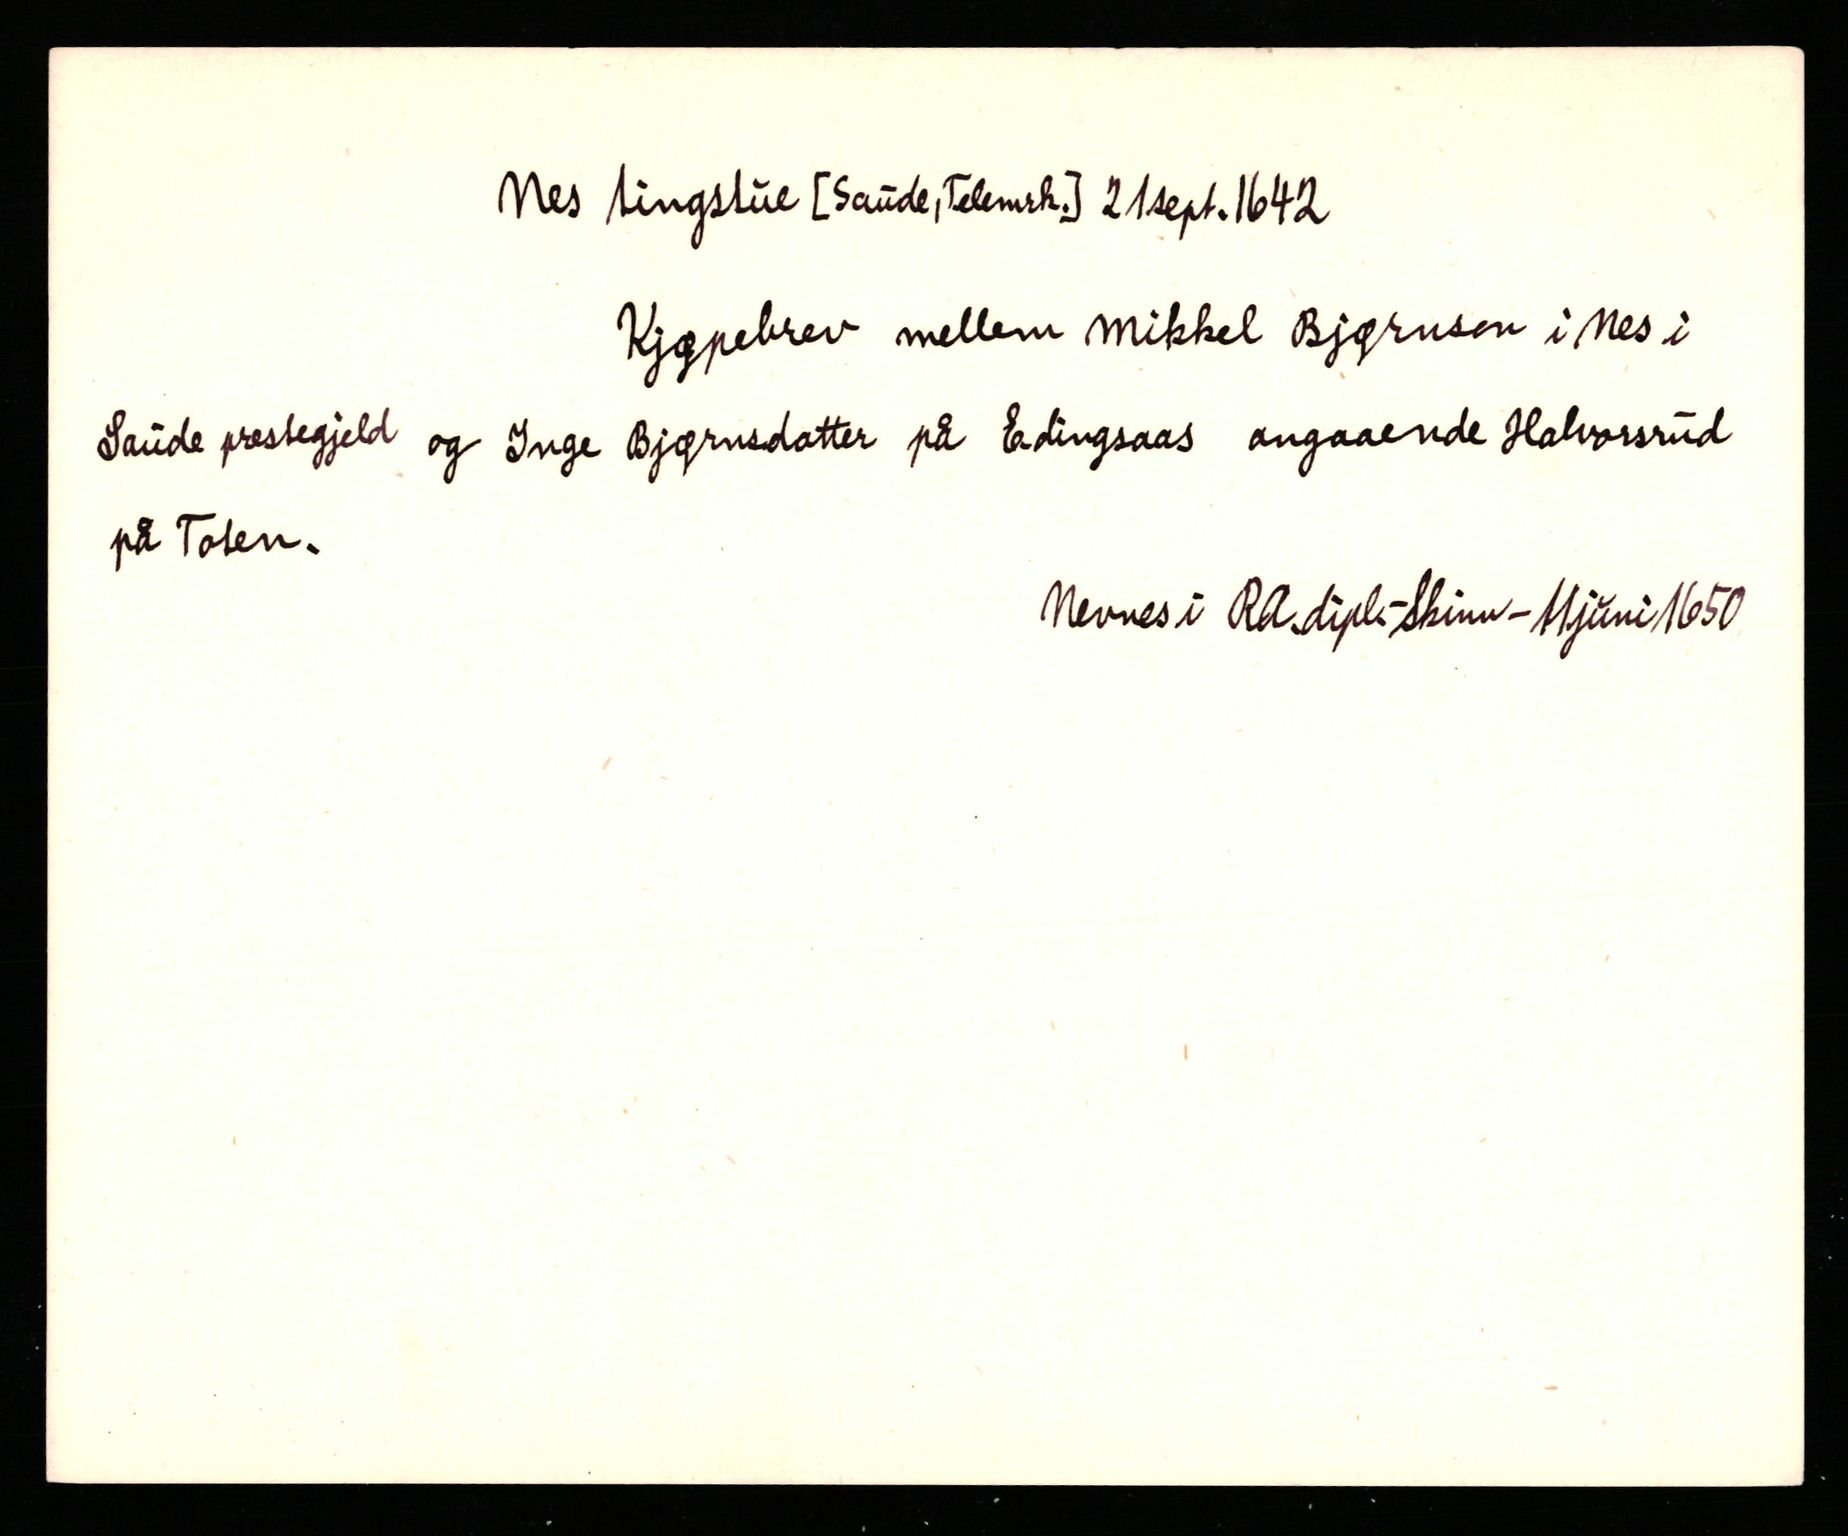 Nes tingstue [Saude, Telemrk.] 21 sept. 1642
Kjøpebrev mellem Mikkel Bjørnsen i Nes i
Saude prestegjeld og Inge Bjørnsdatter på Edingsaas angaaende Halvorsrud
på Toten.
Nevnes i RA. dipl. - Skinn - 11 juni 1650